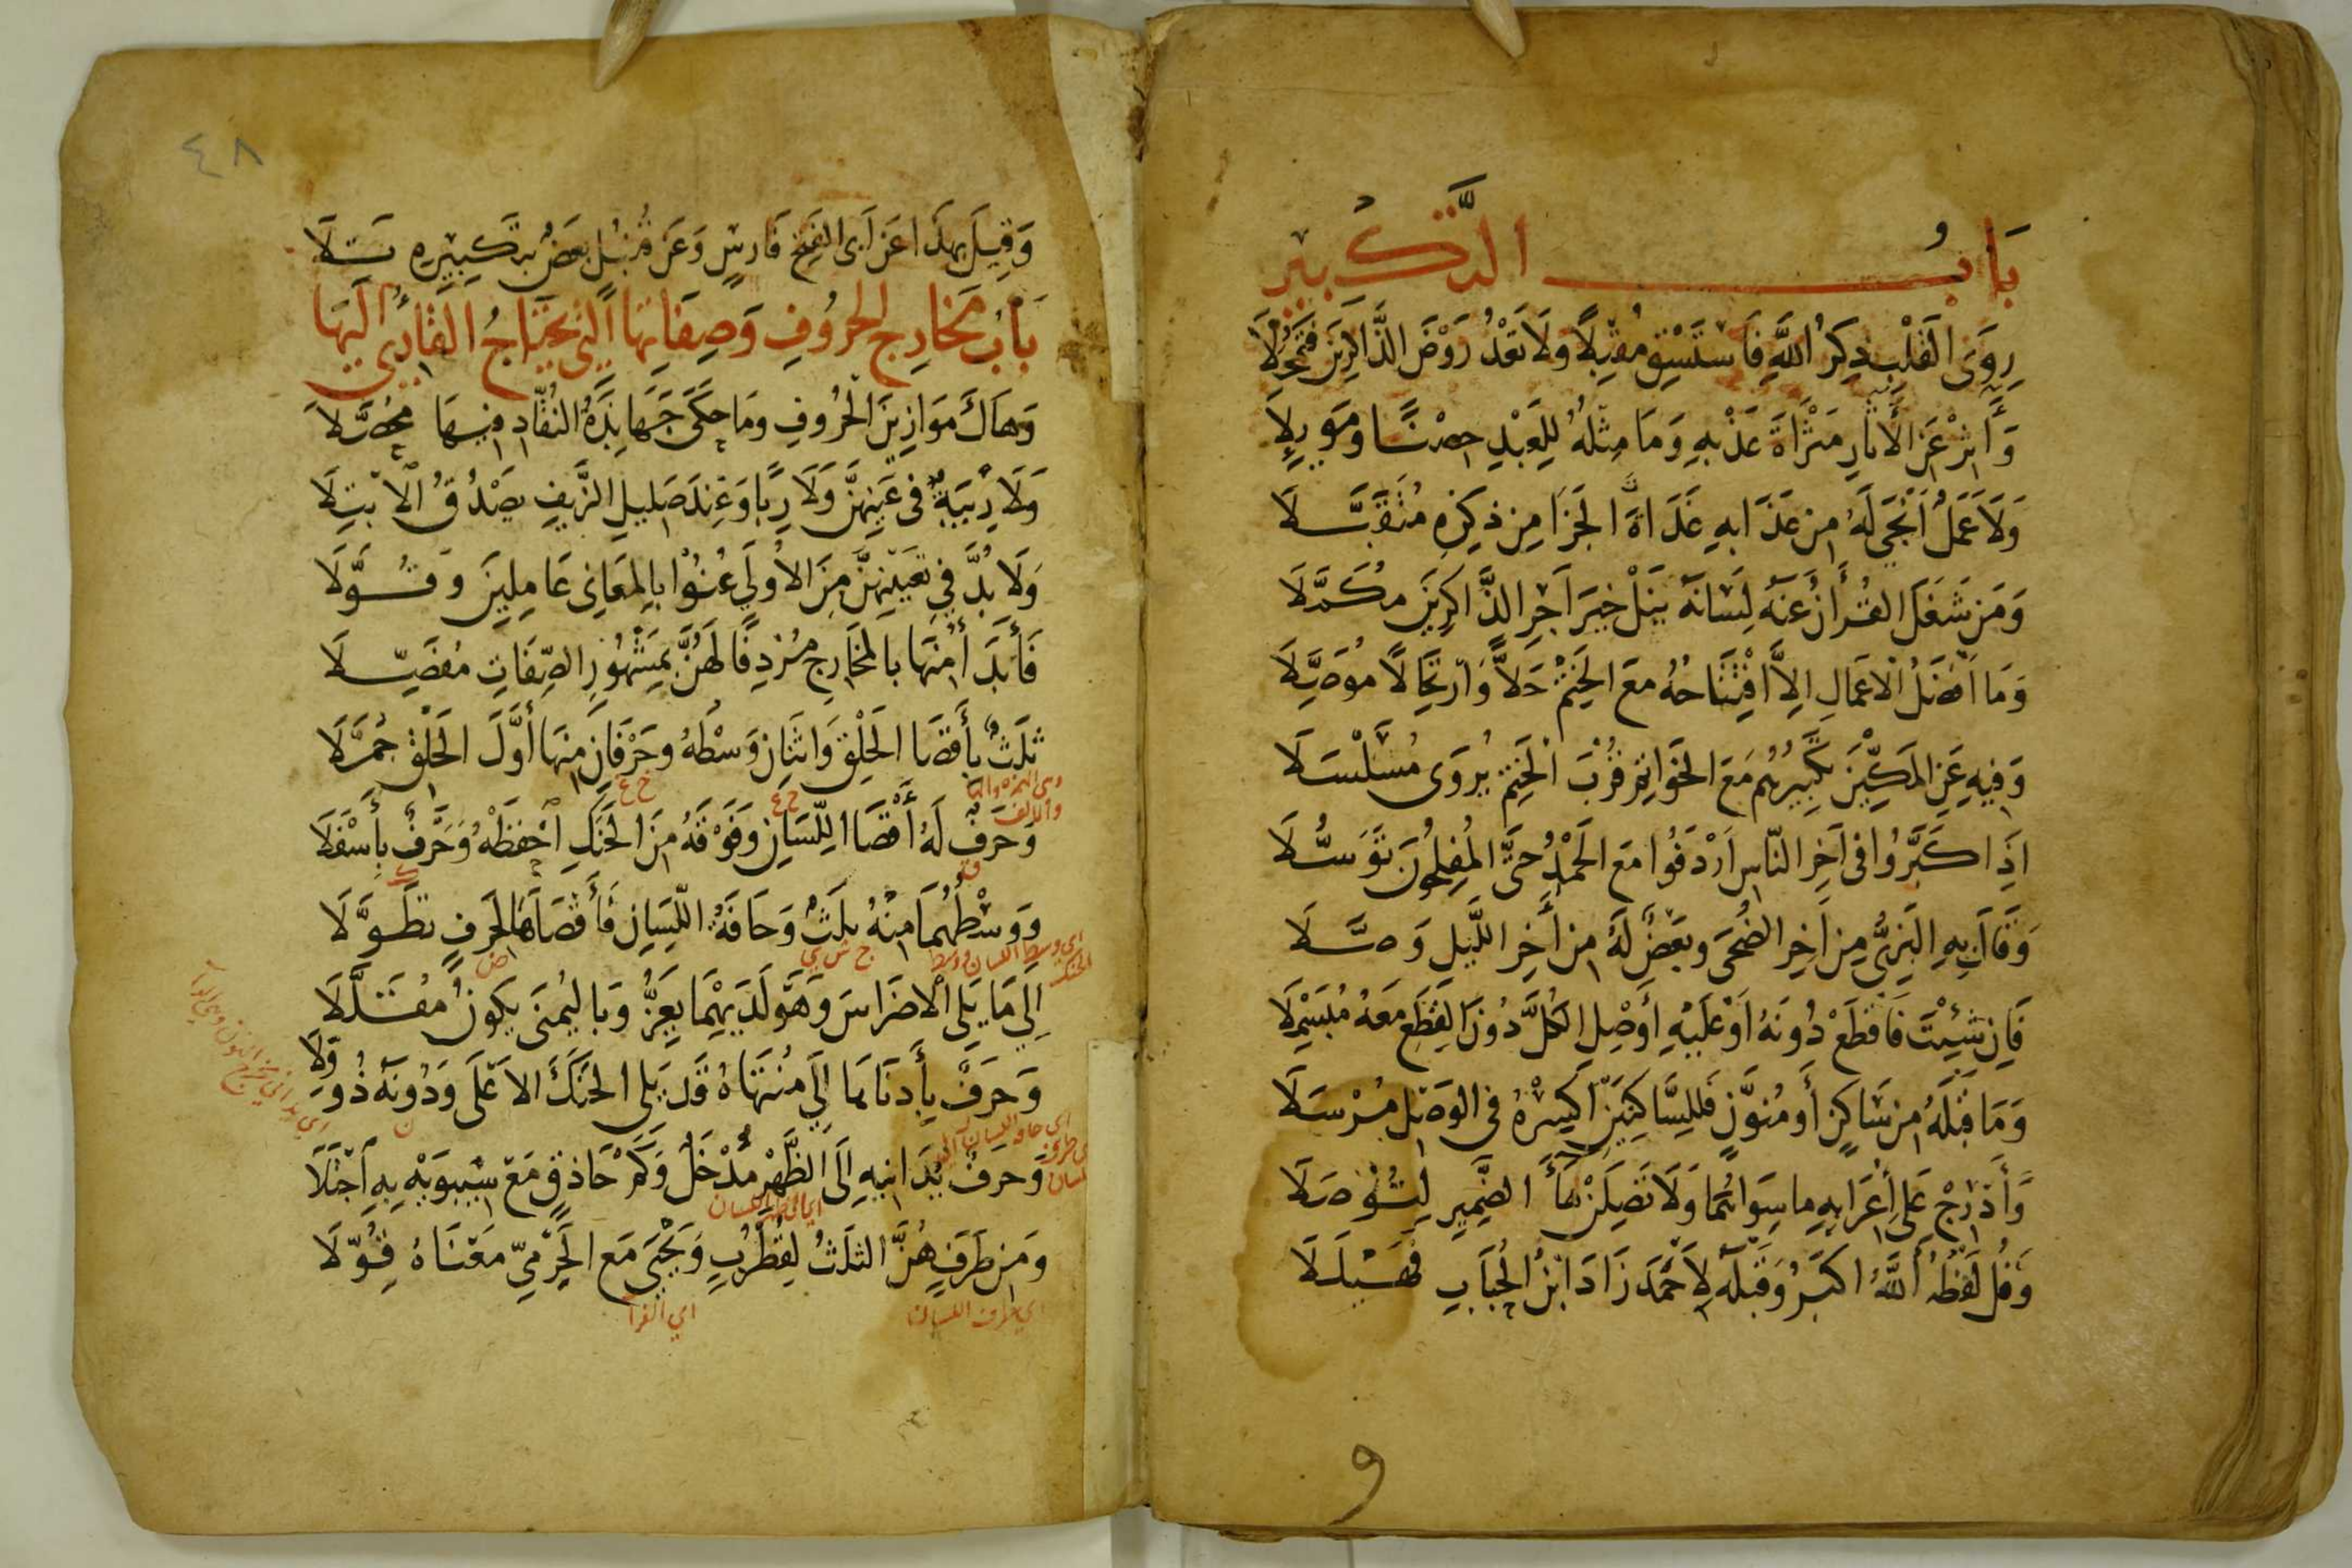 بَابُ التَّكْبِيرِ
رِوَى الْقَلْبِ ذِكْرُ اللَّهِ فَاسْتَسْقِ مُقْبِلًا وَلَا تَعْدُ رَوْضَ الذَّاكِرِينَ فَتُمْحِلَا
وَآثِرْ عَنِ الْآثَارِ مَثْرَاةَ عَذْبِهِ وَمَا مِثْلُهُ لِلْعَبْدِ حِصْنًا وَمَوْئِلَا
وَلَا عَمَلٌ أَنْجَى لَهُ مِنْ عَذَابِهِ غَدَاةَ الْجَزَا مِنْ ذِكْرِهِ مُتَقَبَّلَا
وَمَنْ شَغَلَ الْقُرْآنُ عَنْهُ لِسَانَهُ يَنَلْ خَيْرَ أَجْرِ الذَّاكِرِينَ مُكَمَّلَا
وَمَا أَفْضَلُ الْأَعْمَالِ إِلَّا افْتِتَاحُهُ مَعَ الْخَتْمِ حَلًّا وَارْتِحَالًا مُوَصَّلَا
وَفِيهِ عَنِ الْمَكِّيِّنَ تَكْبِيرُهُمْ مَعَ الْخَوَاتِمِ قُرْبَ الْخَتْمِ يُرْوَى مُسَلْسَلَا
إِذَا كَبَّرُوا فِي آخِرِ النَّاسِ أَرْدَفُوا مَعَ الْحَمْدِ حَتَّى الْمُفْلِحُونَ تَوَسُّلَا
وَقَالَ بِهِ الْبَزِّيُّ مِنْ آخِرِ الضُّحَى وَبَعْضٌ لَهُ مِنْ آخِرِ اللَّيْلِ وَصَّلَا
فَإِنْ شِئْتَ فَاقْطَعْ دُونَهُ أَوْ عَلَيْهِ أَوْ صِلِ الْكُلَّ دُونَ الْقَطْعِ مَعَهُ مُبَسْمِلَا
وَمَا قَبْلَهُ مِنْ سَاكِنٍ أَوْ مُنَوَّنٍ فَلِلسَّاكِنَيْنِ اكْسِرْهُ فِي الْوَصْلِ مُرْسَلَا
وَأَدْرِجْ عَلَى إِعْرَابِهِ مَا سِوَاهُمَا وَلَا تَصِلَنْ هَاءَ الضَّمِيرِ لِتُوصَلَا
وَقُلْ لَفْظُهُ اللَّهُ أَكْبَرُ وَقَبْلَهُ لِأَحْمَدَ زَادَ ابْنُ الْحُبَابِ فَهَيْلَلَا
و
٤٨
وَقِيلَ بِهَذَا عَنْ أَبِي الْفَتْحِ فَارِسٍ وَعَنْ قُنْبُلٍ بَعْضٌ بِتَكْبِيرِهِ تَلَا
بَابُ مَخَارِجِ الْحُرُوفِ وَصِفَاتِهَا الَّتِي يَحْتَاجُ الْقَارِئُ إِلَيْهَا
وَهَاكَ مَوَازِينَ الْحُرُوفِ وَمَا حَكَى جَهَابِذَةُ النُّقَّادِ فِيهَا مُحَصَّلَا
وَلَا رِيبَةٌ فِي عَيْنِهِنَّ وَلَا رِبًا وَعِنْدَ صَلِيلِ الزَّيْفِ يَصْدُقُ الِابْتِلَا
وَلَا بُدَّ فِي تَعْيِينِهِنَّ مِنَ الْأُولَى عُنُوا بِالْمَعَانِي عَامِلِينَ وَقُوَّلَا
فَأَبْدَأُ مِنْهَا بِالْمَخَارِجِ مُرْدِفًا لَهُنَّ بِمَشْهُورِ الصِّفَاتِ مُفَصِّلَا
ثَلَثٌ بِأَقْصَا الْحَلْقِ وَاثْنَانِ وَسْطَهُ وَحَرْفَانِ مِنْهَا أَوَّلَ الْحَلْقِ جُمِّلَا
وهي الهمزة والها والالف
وَحَرْفٌ لَهُ أَقْصَا اللِّسَانِ وَفَوْقَهُ مِنَ الْحَنَكِ احْفَظْهُ وَحَرْفٌ بِأَسْفَلَا
وَوَسْطُهُمَا مِنْهُ ثَلَثٌ وَحَافَةُ اللِّسَانِ فَأَقْصَاهَا لِحَرْفٍ تَطَوَّلَا
اي وسط اللسان ووسط الحنك
ج ش ي
ض
إِلَى مَا يَلِي الْأَضْرَاسَ وَهْوَ لَدَيْهِمَا يَعِزُّ وَبِالْيُمْنَى يَكُونُ مُقَلَّلَا
وَحَرْفٌ بِأَدْنَاهَا إِلَى مُنْتَهَاهُ قَدْ يَلِي الْحَنَكَ الْأَعْلَى وَدُونَهُ ذُو وِلَا
ن
وَحَرْفٌ يُدَانِيهِ إِلَى الظَّهْرِ مَدْخَلٌ وَكَمْ حَاذِقٍ مَعْ سِيبَوَيْهِ بِهِ اجْتَلَا
وَمِنْ طَرَفٍ هُنَّ الثَّلَثُ لِقُطْرُبٍ وَيَحْيَى مَعَ الْجَرْمِيِّ مَعْنَاهُ قُوِّلَا
اي طرف اللسان
اي الفرا